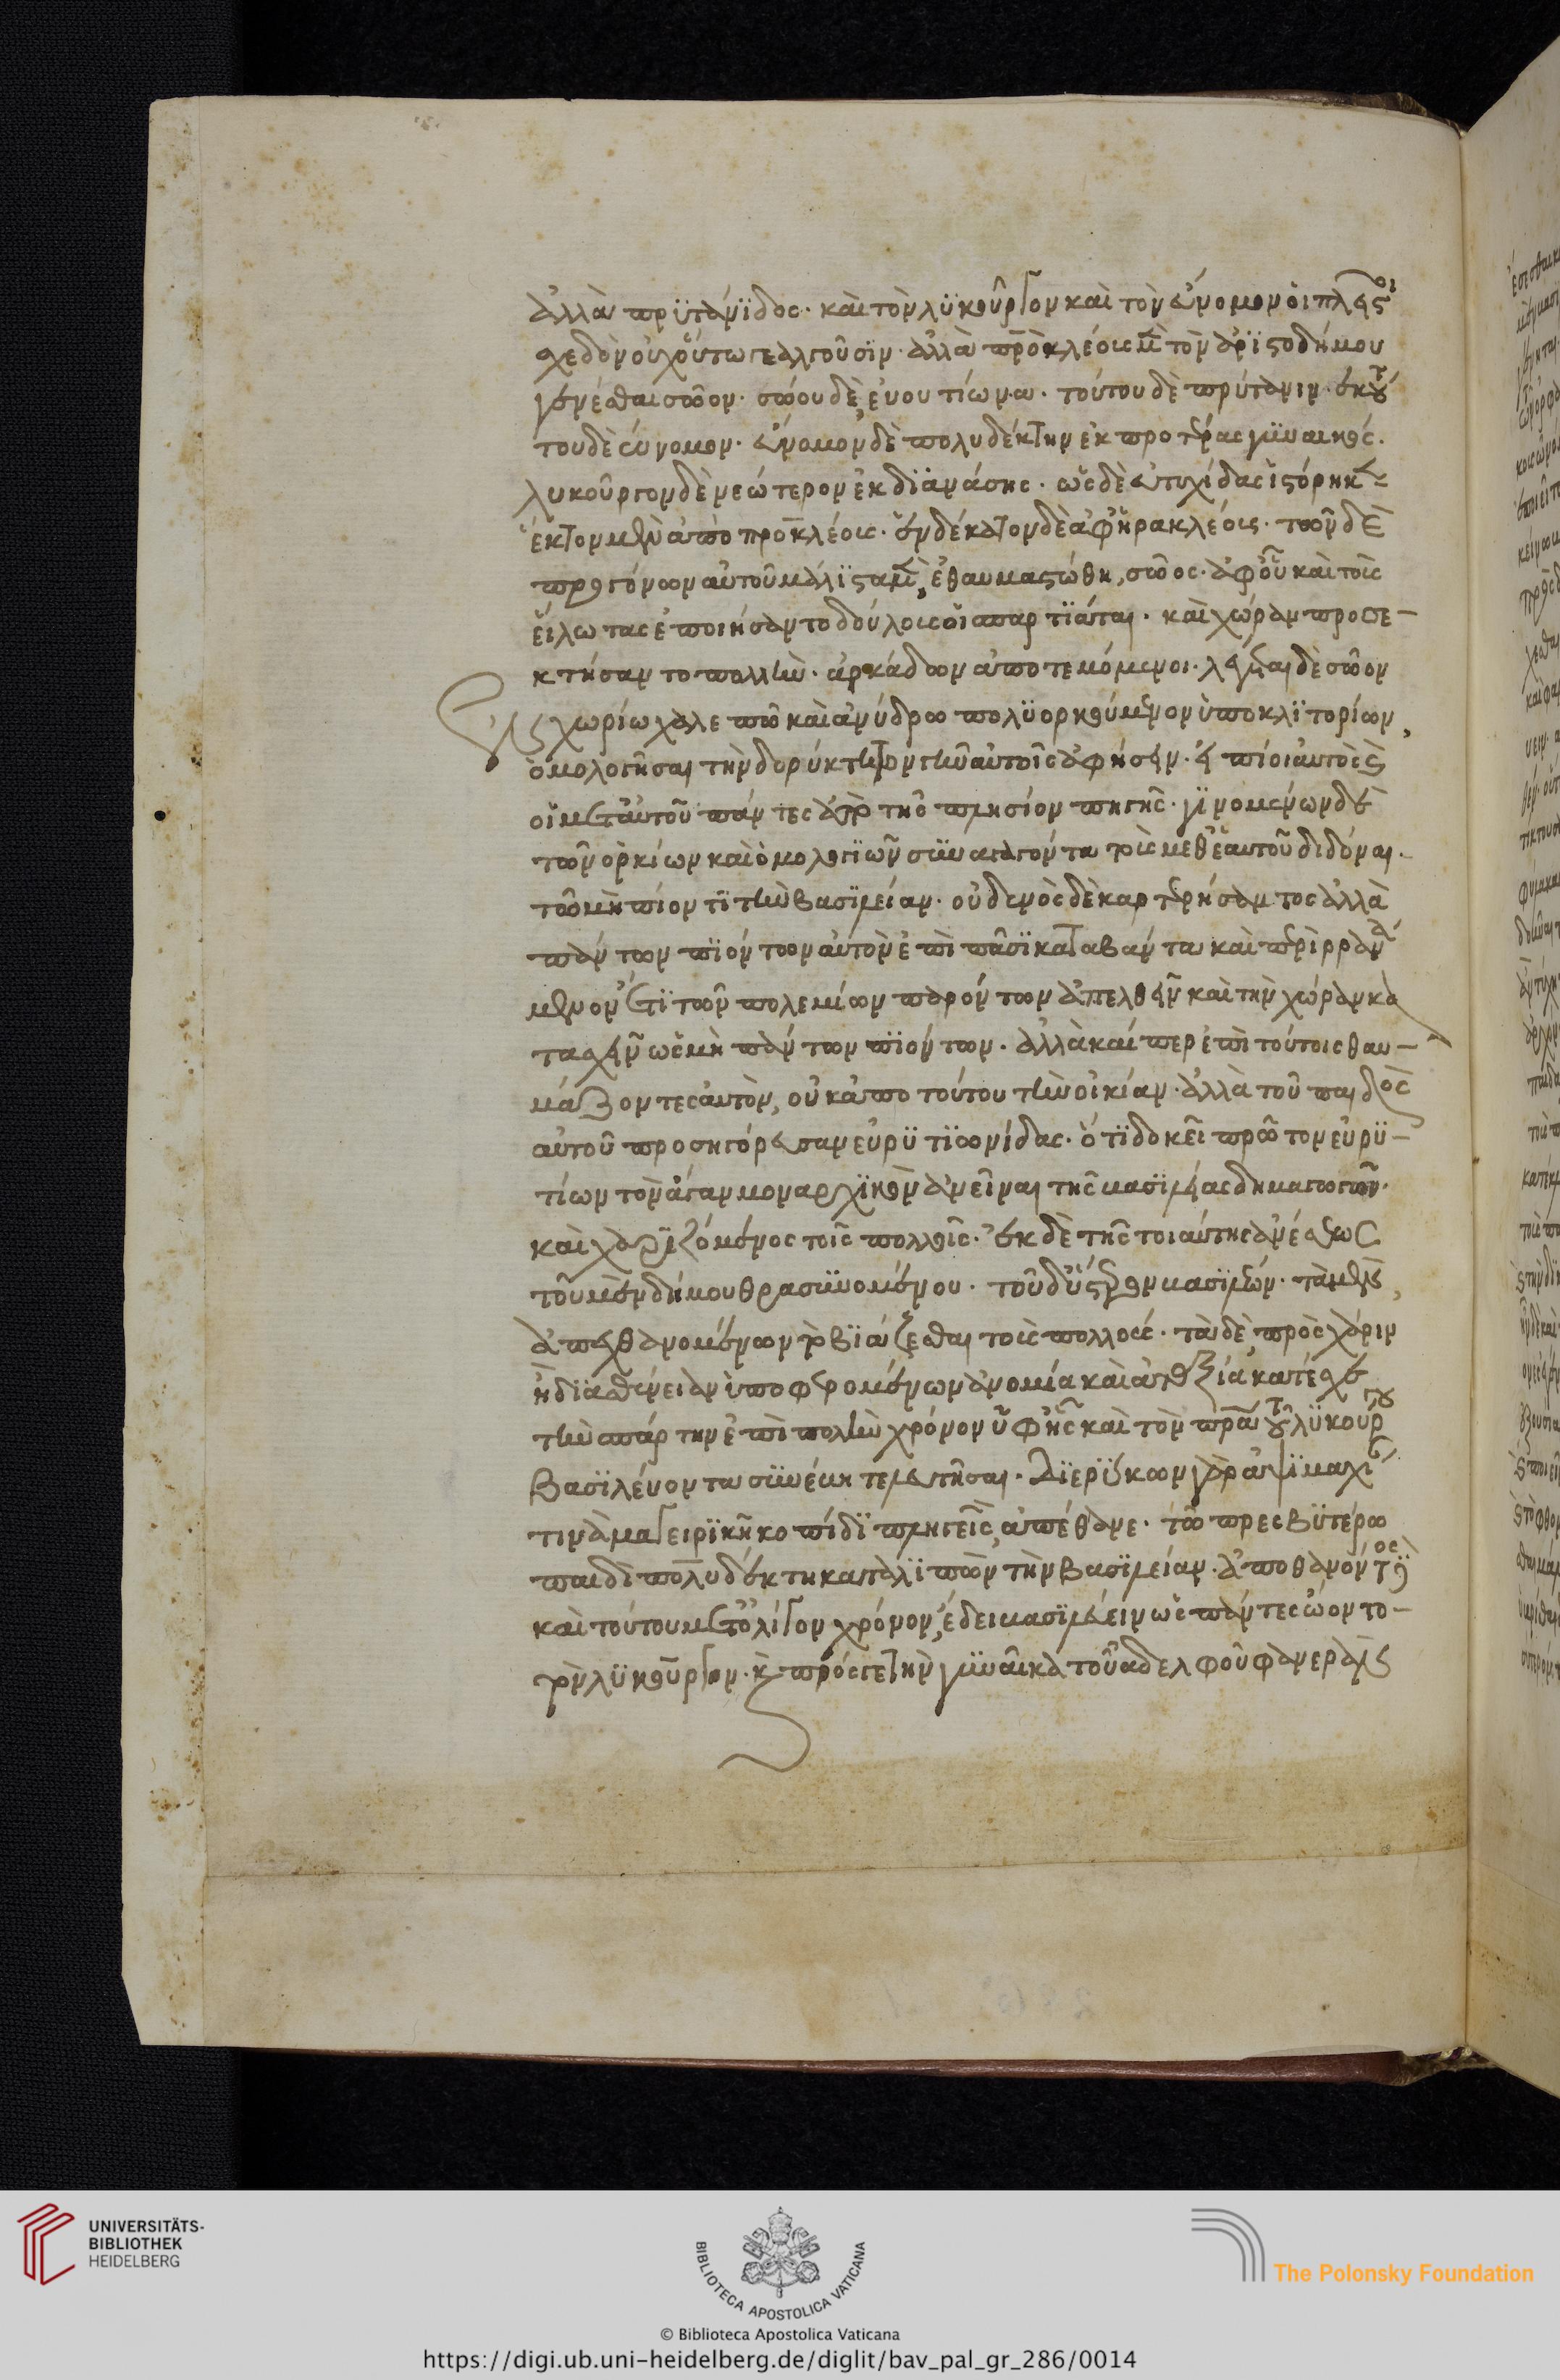 ἀλλὰ πρϋτάνϊδος· καὶ τὸν λϋκοῦργον καὶ τὸν εὔνομον οἱ πλεῖστοι
σχεδὸν οὐχ οὕτω γεαλγοῦσϊν· ἀλλὰ προκλέους μὲν τὸν ἀρϊστοδήμου
γενέσθαι σῶον· σώου δὲ, ἐυρυτίωνα· τούτου δὲ πρύτανιν· ἐκ τού
του δὲ εὔνομον· εὐνόμου δὲ πολυδέκτην ἐκ προτέρας γϋναικός·
λυκοῦργον δὲ νεώτερον ἐκ δϊανάσης· ὡς δὲ εὐτυχίδας ἱστόρηκεν
ἕκτον μὲν ἀπὸ προκλέους· ἑνδέκατον δὲ ἀφ' ἡρακλέους· τῶν δὲ
προγόνων αὐτοῦ μάλϊστα μὲν, ἐθαυμαστώθη, σῶος· ἀφ' οὗ καὶ τοὺς
εἵλωτας ἐποιήσαντο δούλους οἱ σπαρτϊάται· καὶ χώραν προσε-
κτήσαντο πολλὴν· ἀρκάδων ἀποτεμόμενοι· λέγεται δὲ σῶον
ἐν χωρίω χαλεπῶ καὶ ἀνύδρω πολϋορκούμενον ὑπὸ κλϊτορίων,
ὁμολογῆσαι τὴν δορύκτητον γῆν αὐτοῖς ἀφήσειν· εἰ πίοι αὐτός καὶ
οἱ μετ' αὐτοῦ πάντες ἀπὸ τῆς πλησίον πηγῆς· γϊνομένων δὲ
τῶν ὁρκίων καὶ ὁμολογϊῶν συναγαγόντα τοὺς μεθ' ἑαυτοῦ διδόναι·
τῶ μὴ πίοντϊ τὴν βασϊλείαν· οὐδενὸς δὲ καρτερήσαντος ἀλλὰ
πάντων πϊόντων αὐτὸν ἐπὶ πᾶσϊ καταβάντα καὶ περιρρανά
μενον ἔτϊ τῶν πολεμίων παρόντων ἀπελθεῖν καὶ τὴν χώραν κα
τασχεῖν ὡς μὴ πάντων πϊόντων· ἀλλὰ καίπερ ἐπὶ τούτοις θαυ-
μάζοντες αὐτὸν, οὐκ ἀπὸ τούτου τὴν οἰκίαν· ἀλλὰ τοῦ παιδὸς
αὐτοῦ προσηγόρευσαν εὐρϋτϊωνίδας· ὅτϊ δοκεῖ πρῶτον εὐρϋ-
τίων τὸ ἄγαν μοναρχϊκὸν ἀνεῖναι τῆς βασϊλείας δημαγωγῶν·
καὶ χαρϊζόμενος τοῖς πολλοῖς· ἐκ δὲ τῆς τοιαύτης ἀνέσεως
τοῦ μὲν δήμου θρασϋνομένου· τοῦ δ' ὕστερον βασϊλεῶν· τὰ μὲν,
ἀπεχθανομένων τῶ βϊάζεσθαι τοὺς πολλούς· τὰ δὲ πρὸς χάριν
ἢ δϊ' ἀσθένειαν ὑποφερομένων ἀνομία καὶ ἀταξία κατέσχε
τὴν σπάρτην ἐπὶ πολὺν χρόνον ὑφ' ἧς καὶ τὸν πατέρα τοῦ λϋκούργου
βασϊλεύοντα συνέβη τελευτῆσαι· δϊερύκων γὰρ ἁψϊμαχίαν
τινὰ μαγειρϊκῇ κοπίδϊ πληγεῖς, ἀπέθανε· τῶ πρεσβϋτέρω
παιδὶ πολυδέκτη καταλϊπὼν τὴν βασϊλείαν· ἀποθανόντος
καὶ τούτου μετ' ὀλίγον χρόνον, ἔδει βασϊλεύειν ὡς πάντες ὤοντο-
τὸν λϋκοῦργον· καὶ πρός γε τὴν γϋναῖκα τοῦ αδελφοῦ φανερὰν
UNIVERSITÄTS-
BIBLIOTHEK
HEIDELBERG
BIBLIOTECA APOSTOLICA VATICANA
The Polonsky Foundation
© Biblioteca Apostolica Vaticana
https://digi.ub.uni-heidelberg.de/diglit/bav_pal_gr_286/0014